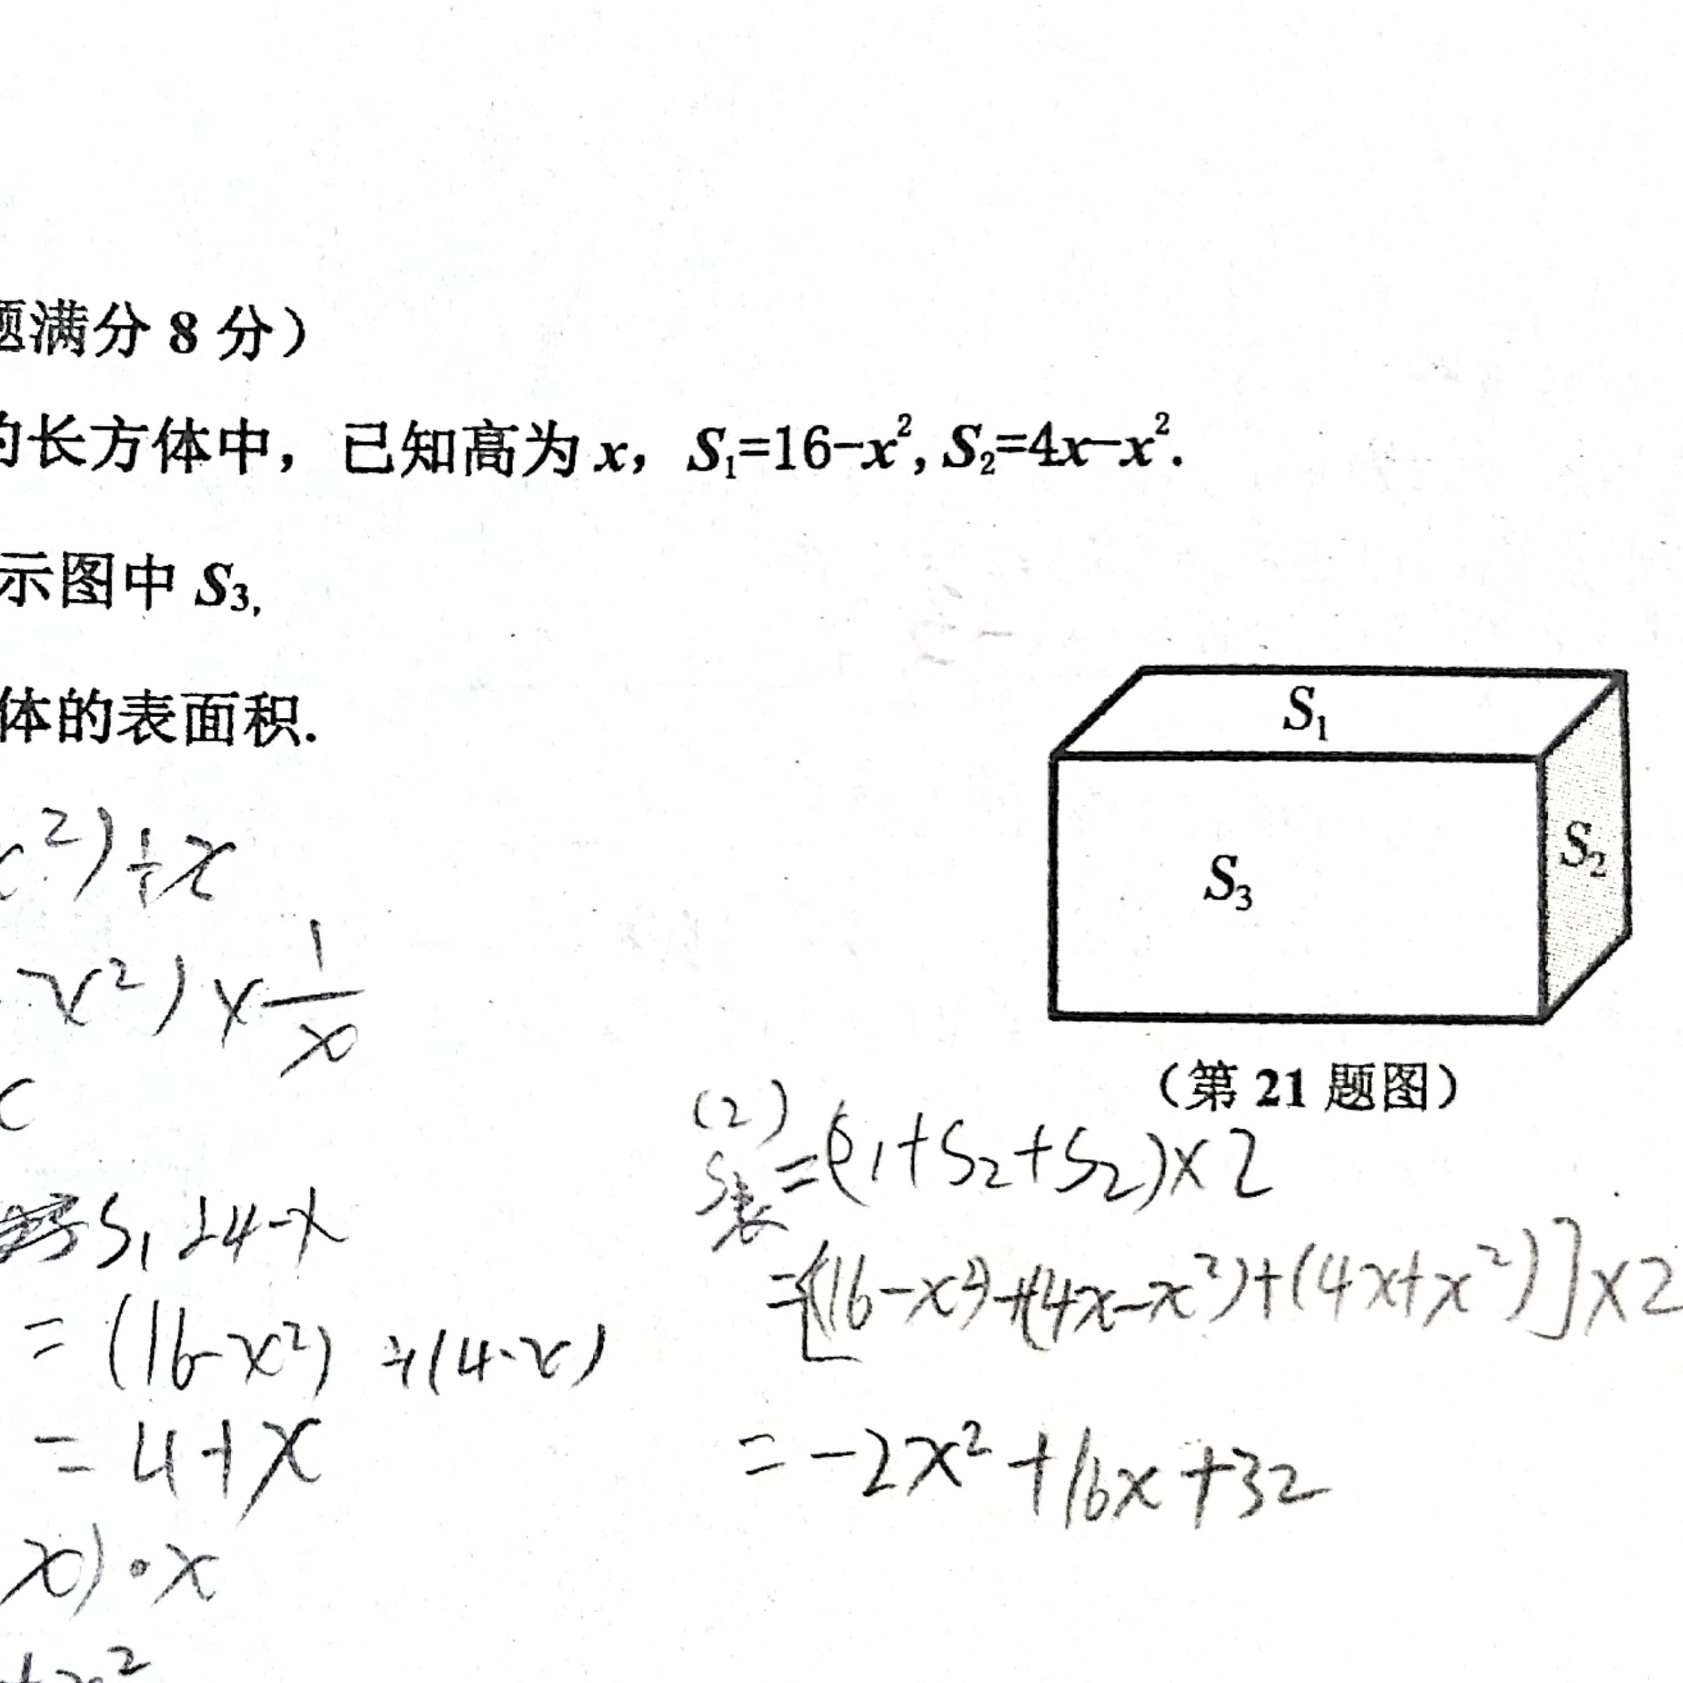 题满分 8 分）
的长方体中，已知高为 x，S₁=16-x², S₂=4x-x².
示图中 S₃,
体的表面积.
S₁
S₂
S₃
（第 21 题图）
x²)÷x
-x²)×1/x
S₁÷4-x
=(16-x²)÷(4-x)
=4+x
x)·x
+x²
(2)
S表=(S₁+S₂+S₂)×2
=[(16-x²)+(4x-x²)+(4x+x²)]×2
=-2x²+16x+32